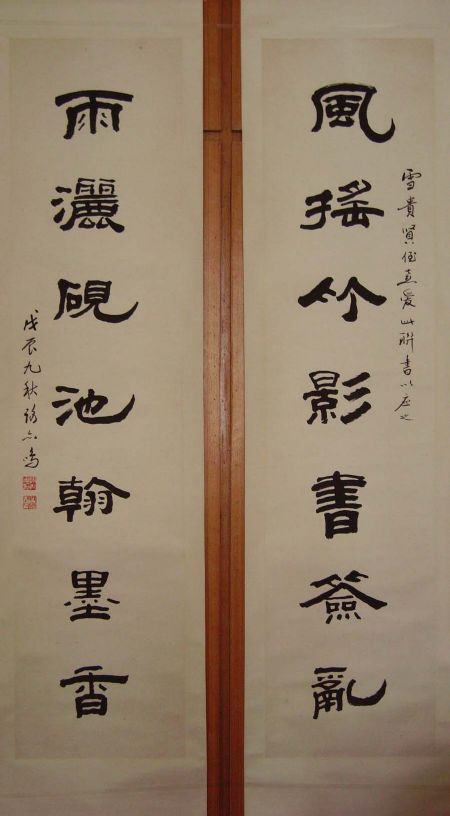 風搖竹影書簽亂
雪貴賢侄喜愛此聯書以應之
雨灑硯池翰墨香
戊辰九秋